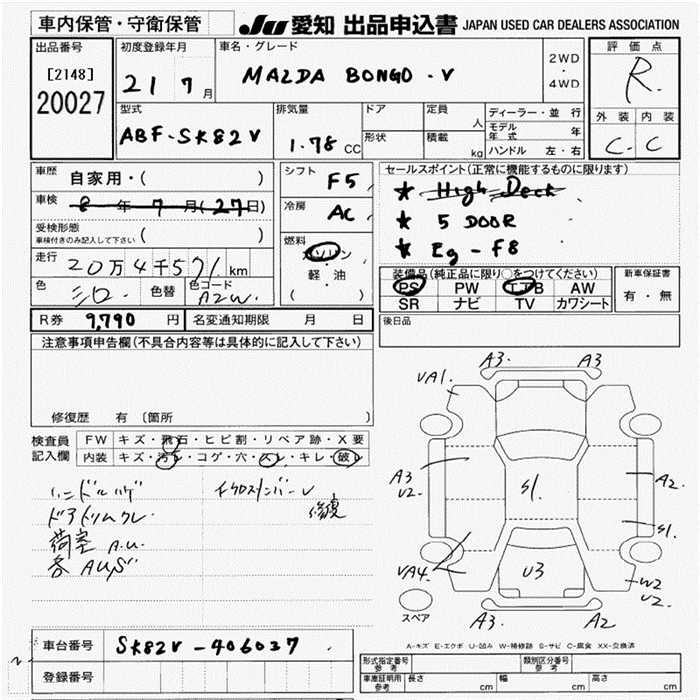 車内保管・守衛保管 JU 愛知 出品申込書 JAPAN USED CAR DEALERS ASSOCIATION
出品番号 初度登録年月 車名・グレード 評価点
[2148] 21 7月 MAZDA BONGO・V 2WD・4WD R
20027
型式 排気量 ドア 定員 人 ディーラー・並行 外装 内装
ABF-SK82V 1.78 CC 形状 積載 kg モデル年式 年 C C
ハンドル 左・右
車歴 自家用・( ) シフト F5 セールスポイント(正常に機能するものに限ります)
車検 8年7月(27日) 冷房 AC ★ High Deck
受検形態 ( ) ★ 5 DOOR
車検付きのみ記入して下さい 燃料 ガソリン ★ Eg-F8
走行 20万4千571km 軽・油 装備品(純正品に限り○をつけてください) 新車保証書
色 シロ 色替 色コード A2W ( ) PS PW エアB AW 有・無
SR ナビ TV カワシート
R券 9,790円 名変通知期限 月 日 後日品
注意事項申告欄(不具合内容等は具体的に記入して下さい)
修復歴 有 〔箇所
検査員記入欄 FW キズ・飛石・ヒビ割・リペア跡・X要
内装 キズ・汚レ・コゲ・穴・スレ・キレ・破レ
ハンドルハゲ
ドアトリムクレ
荷室 A.U.
各 AUS
修復
A3. A3
VA1.
A3
U2.
S1.
A2
S1.
VA4.
U3
W2
U2.
スペア A3. A2
A-キズ E-エクボ U-凹み W-補修跡 S-サビ C-腐食 XX-交換済
車台番号 SK82V-406037
登録番号
形式指定番号 参考 類別区分番号 参考
車庫証明用 参考 長さ cm 幅 cm 高さ cm